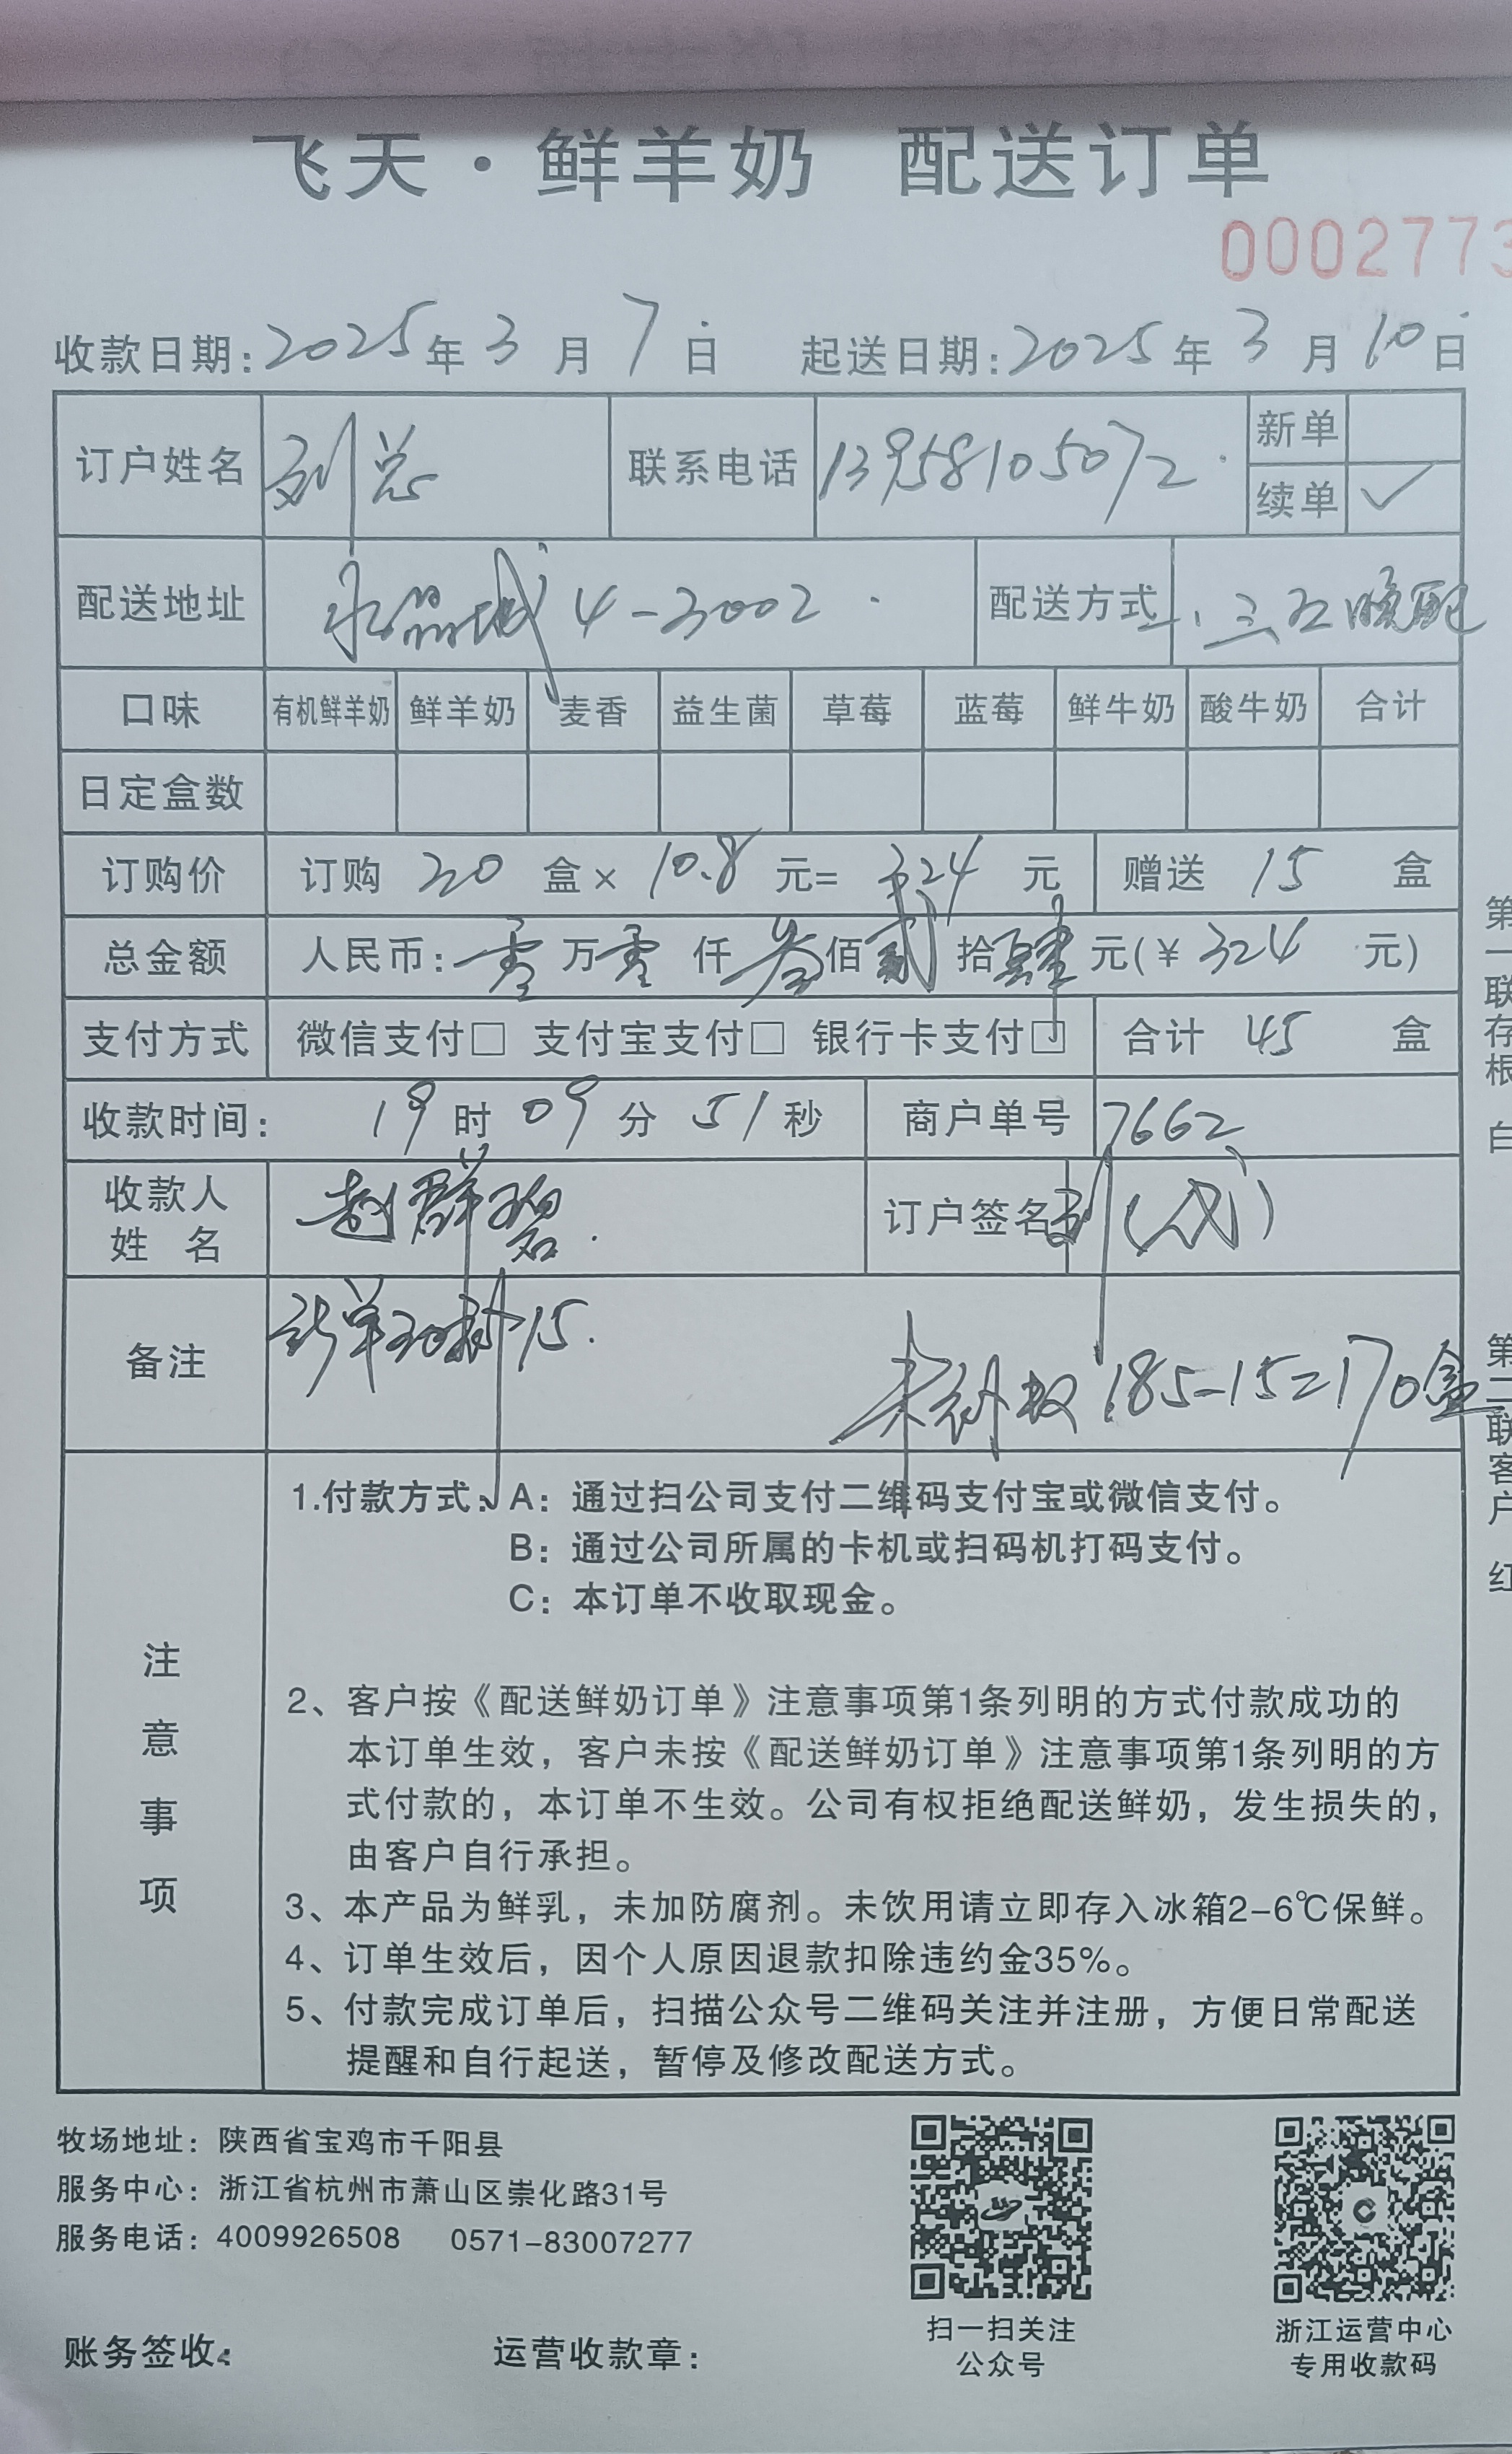 飞天·鲜羊奶 配送订单
0002773
收款日期:2025年3月7日 起送日期:2025年3月10日
订户姓名 刘总 联系电话 13958105072 新单
续单 ✓
配送地址 水晶城4-3002 配送方式 一.三.五晚配
口味 有机鲜羊奶 鲜羊奶 麦香 益生菌 草莓 蓝莓 鲜牛奶 酸牛奶 合计
日定盒数
订购价 订购 30 盒× 10.8 元= 324 元 赠送 15 盒
总金额 人民币: 零 万 零 仟 叁 佰 贰 拾 肆 元(¥ 324 元)
支付方式 微信支付□ 支付宝支付□ 银行卡支付□ 合计 45 盒
收款时间: 19时09分51秒 商户单号 7662
收款人姓名 赵群碧 订户签名 刘(代)
备注 15.
185-15=170盒
注意事项
1.付款方式: A:通过扫公司支付二维码支付宝或微信支付。
B:通过公司所属的卡机或扫码机打码支付。
C:本订单不收取现金。
2、客户按《配送鲜奶订单》注意事项第1条列明的方式付款成功的
本订单生效,客户未按《配送鲜奶订单》注意事项第1条列明的方
式付款的,本订单不生效。公司有权拒绝配送鲜奶,发生损失的,
由客户自行承担。
3、本产品为鲜乳,未加防腐剂。未饮用请立即存入冰箱2-6℃保鲜。
4、订单生效后,因个人原因退款扣除违约金35%。
5、付款完成订单后,扫描公众号二维码关注并注册,方便日常配送
提醒和自行起送,暂停及修改配送方式。
第一联存根 白
第二联客户 红
牧场地址:陕西省宝鸡市千阳县
服务中心:浙江省杭州市萧山区崇化路31号
服务电话:4009926508 0571-83007277
扫一扫关注
公众号
浙江运营中心
专用收款码
账务签收: 运营收款章: